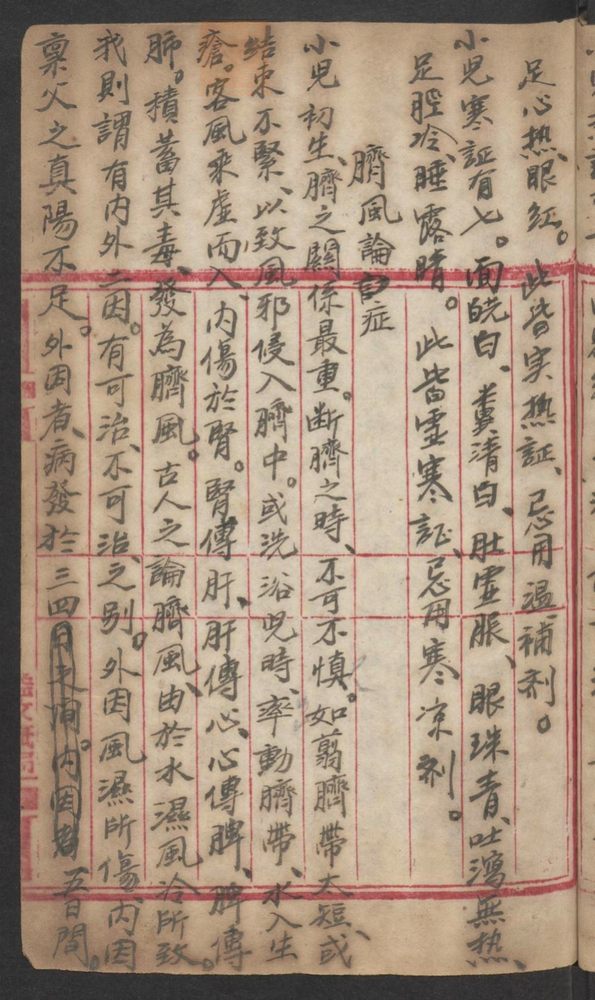 足心热、眼红。此皆实热証、忌用溫補剂。
小児寒証有七。面皖白、粪清白、肚虚脹、眼珠青、吐瀉無热、
足脛冷、睡露睛。此皆虚寒証、忌用寒凉剂。
臍風論症
小児初生、臍之關係最重。断臍之時、不可不慎。如翦臍帶太短、或
結束不緊、以致風邪侵入臍中。或洗浴児時、牽動臍帶、水入生
瘡。客風乘虚而入、内傷於腎。腎傳肝、肝傳心、心傳脾、脾傳
肺。積蓄其毒、發為臍風。古人之論臍風、由於水濕風冷所致。
我則謂有内外二因。有可治、不可治、之别。外因風濕所傷、内因
稟父之真陽不足。外因者、病發於三四五日間。